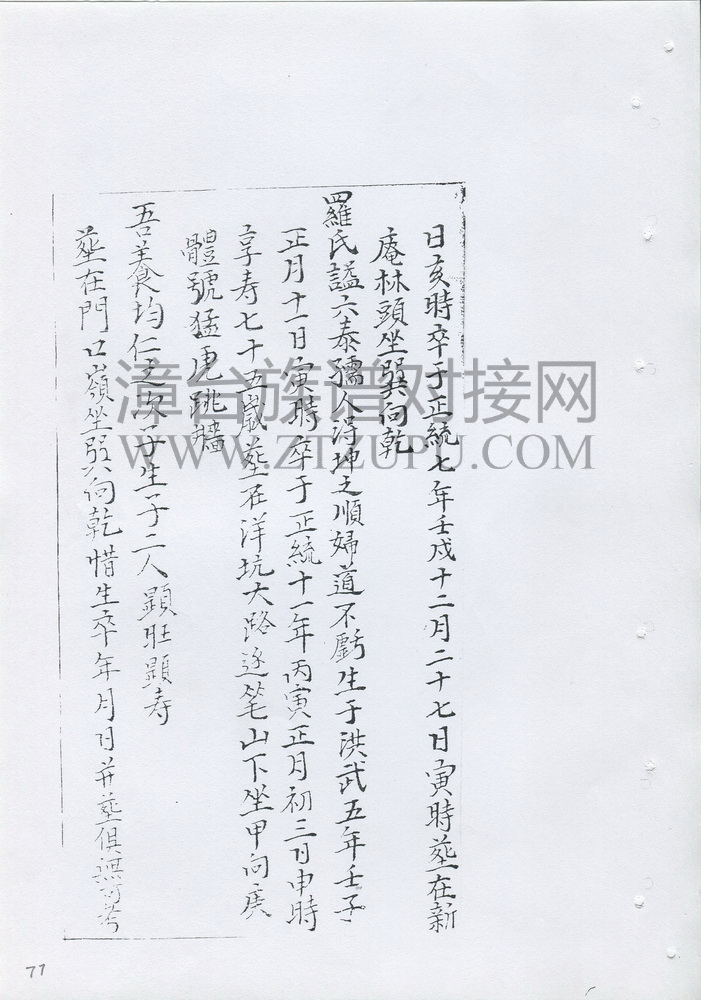 日亥時卒于正統七年壬戌十二月二十七日寅時塟在新
庵林頭坐巽向乾
羅氏謚六泰孺人淂坤之順婦道不虧生于洪武五年壬子
正月十一日寅時卒于正統十一年丙寅正月初三日申時
享寿七十五歲塟在洋坑大路邊笔山下坐甲向庚
體號猛虎跳牆
吾養均仁之次子生子二人顕旺顕寿
塟在門口嶺坐巽向乾惜生卒年月日并塟俱無可考
漳台族谱对接网
WWW.ZTZUPU.COM
77